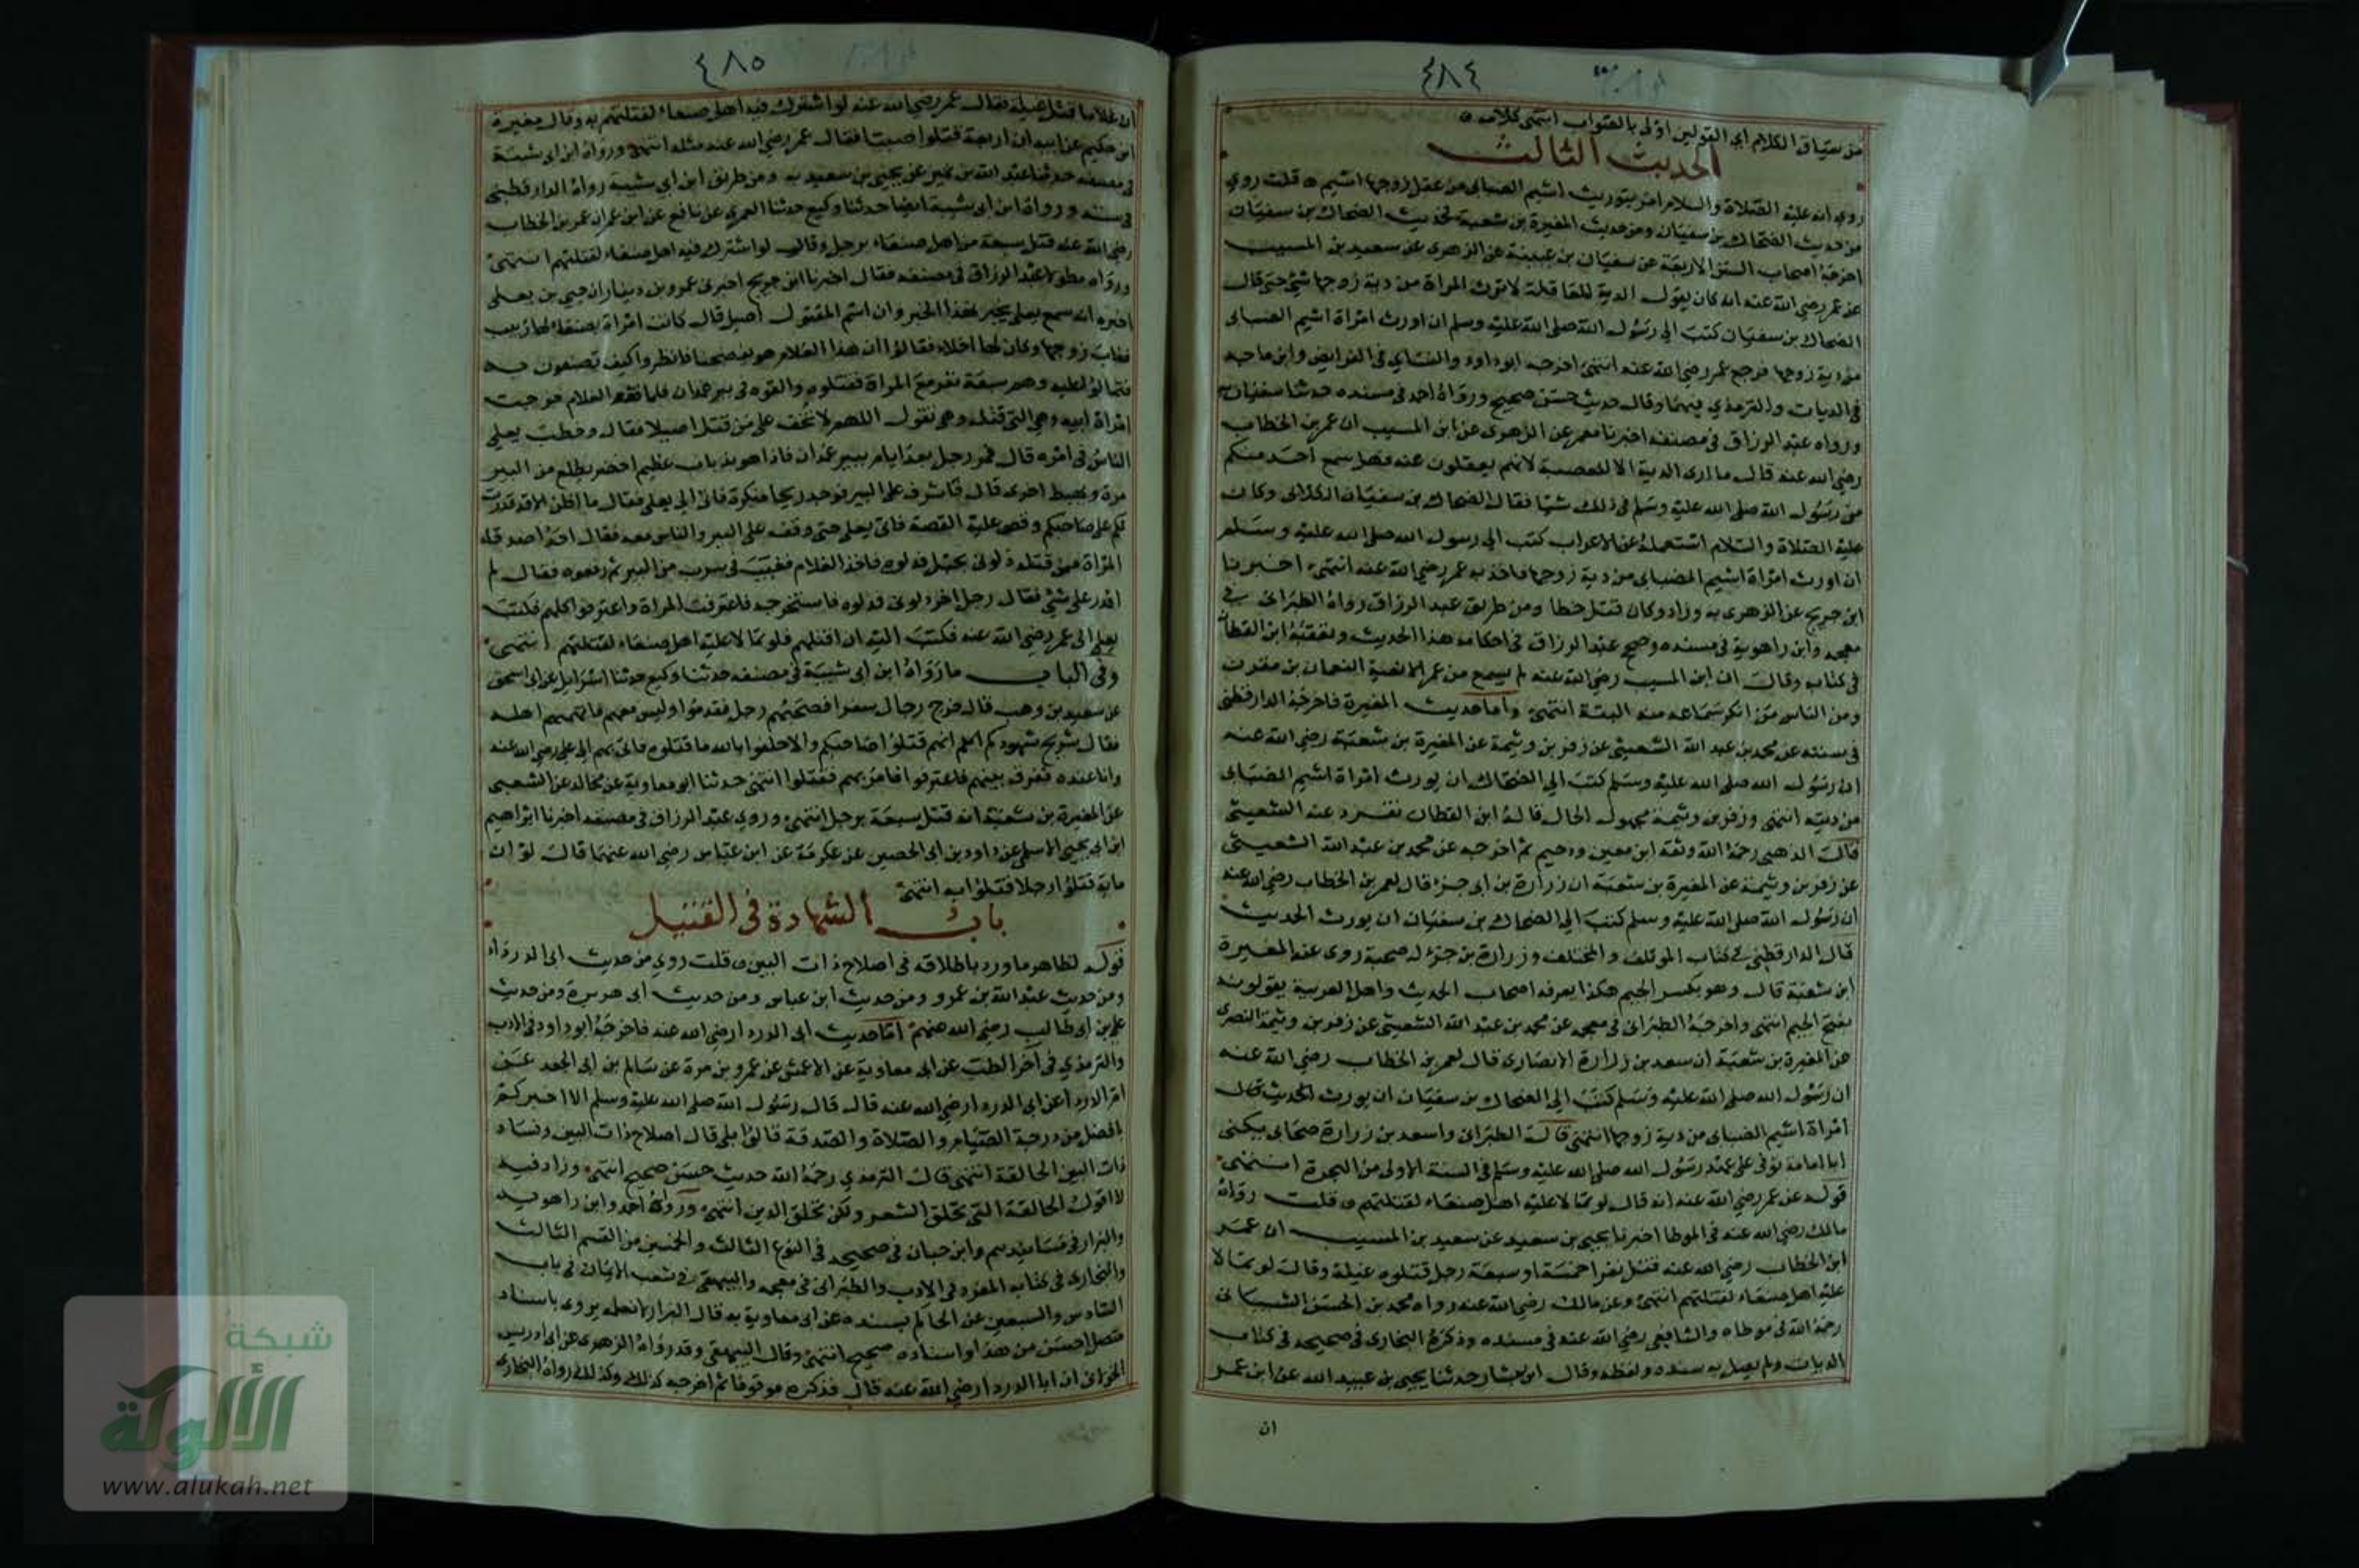 ٤٨٤
من سياق الكلام اي القولين اولى بالصواب انتهى كلامه
الحديث الثالث
روي انه عليه الصلاة والسلام امر بتوريث اشيم الضبابى من عقل زوجها اشيم قلت روي
من حديث الضحاك بن سفيان ومن حديث المغيرة بن شعبة فحديث الضحاك بن سفيان
اخرجه اصحاب السنن الاربعة عن سفيان بن عيينة عن الزهرى عن سعيد بن المسيب
عن عمر رضي الله عنه انه كان يقول الدية للعاقلة لا ترث المراة من دية زوجها شئ حتى قال
الضحاك بن سفيان كتب الي رسول الله صلى الله عليه وسلم ان اورث امراة اشيم الضبابى
من دية زوجها فرجع عمر رضي الله عنه انتهى اخرجه ابو داود والنساي في الفرايض وابن ماجه
في الديات والترمذي فيهما وقال حديث حسن صحيح ورواه احمد في مسنده حدثنا سفيان به
ورواه عبد الرزاق في مصنفه اخبرنا معمر عن الزهرى عن ابن المسيب ان عمر بن الخطاب
رضي الله عنه قال ما ارى الدية الا للعصبة لانهم يعقلون عنه فهل سمع احد منكم
من رسول الله صلى الله عليه وسلم في ذلك شيا فقال الضحاك بن سفيان الكلابى وكان
عليه الصلاة والسلام استعمله على الاعراب كتب الي رسول الله صلى الله عليه وسلم
ان اورث امراة اشيم الضبابى من دية زوجها فاخذ به عمر رضي الله عنه انتهى اخبرنا
ابن جريج عن الزهرى به وزاد وكان قتل خطا ومن طريق عبد الرزاق رواه الطبرانى في
معجمه وابن راهوية في مسنده وصحح عبد الرزاق في احكامه هذا الحديث وتعقبه ابن القطان
في كتابه وقال ان ابن المسيب رضي الله عنه لم يسمع من عمر الا نعيه النعمان بن مقرن
ومن الناس من انكر سماعه منه البتة انتهى واما حديث المغيرة فاخرجه الدارقطنى
في سننه عن محمد بن عبد الله الشعيثي عن زفر بن وثيمة عن المغيرة بن شعبة رضي الله عنه
ان رسول الله صلى الله عليه وسلم كتب الي الضحاك ان يورث امراة اشيم الضبابى
من ديته انتهى وزفر بن وثيمة مجهول الحال قاله ابن القطان تفرد عنه الشعيثي
قال الذهبي رحمه الله وثقه ابن معين ودحيم ثم اخرجه عن محمد بن عبد الله الشعيثي
عن زفر بن وثيمة عن المغيرة بن شعبة ان زرارة بن ابى جزء قال لعمر بن الخطاب رضي الله عنه
ان رسول الله صلى الله عليه وسلم كتب الي الضحاك بن سفيان ان يورث الحديث
قال الدارقطني في كتاب المؤتلف والمختلف وزرارة بن جزء له صحبة روى عنه المغيرة
ابن شعبة قال وهو بكسر الجيم هكذا يعرفه اصحاب الحديث واهل العربية يقولونه
بفتح الجيم انتهى واخرجه الطبرانى في معجمه عن محمد بن عبد الله الشعيثي عن زفر بن وثيمة النصرى
عن المغيرة بن شعبة ان سعد بن زرارة الانصارى قال لعمر بن الخطاب رضي الله عنه
ان رسول الله صلى الله عليه وسلم كتب الي الضحاك بن سفيان ان يورث الحديث قال
امراة اشيم الضبابى من دية زوجها انتهى قال الطبرانى واسعد بن زرارة صحابى يكنى
ابا امامة توفى على عهد رسول الله صلى الله عليه وسلم في السنة الاولى من الهجرة انتهى
قوله عن عمر رضي الله عنه انه قال لو تمالا عليه اهل صنعاء لقتلتهم قلت رواه
مالك رضي الله عنه في الموطا اخبرنا يحيى بن سعيد عن سعيد بن المسيب ان عمر
ابن الخطاب رضي الله عنه قتل نفرا خمسة او سبعة برجل قتلوه غيلة وقال لو تمالا
عليه اهل صنعاء لقتلتهم انتهى وعن مالك رضي الله عنه رواه محمد بن الحسن الشيبانى
رحمه الله في موطاه والشافعي رضي الله عنه في مسنده وذكره البخارى في صحيحه في كتاب
الديات ولم يصل به سنده ولفظه وقال ابن بشار حدثنا يحيى بن عبيد الله عن ابن عمر
ان
٤٨٥
ان غلاما قتل غيلة فقال عمر رضي الله عنه لو اشترك فيه اهل صنعاء لقتلتهم به وقال مغيرة
ابن حكيم عن ابيه ان اربعة قتلوا صبيا فقال عمر رضي الله عنه مثله انتهى ورواه ابن ابى شيبة
في مصنفه حدثنا عبد الله بن نمير عن يحيى بن سعيد به ومن طريق ابن ابي شيبة رواه الدارقطني
في سننه ورواه ابن ابى شيبة ايضا حدثنا وكيع حدثنا العمري عن نافع عن ابن عمر ان عمر بن الخطاب
رضي الله عنه قتل سبعة من اهل صنعاء برجل وقال لو اشترك فيه اهل صنعاء لقتلتهم انتهى
ورواه مطولا عبد الرزاق في مصنفه فقال اخبرنا ابن جريج اخبرنى عمرو بن دينار ان حيي بن يعلى
اخبره انه سمع يعلى يخبر بهذا الخبر وان اسم المقتول اصيل قال كانت امراة بصنعاء لها ربيب
فغاب زوجها وكان لها اخلاء فقالوا ان هذا الغلام هو يفضحنا فانظروا كيف تصنعون به
فتمالؤا عليه وهم سبعة نفر مع المراة فقتلوه والقوه في بير غمدان فلما فقد الغلام خرجت
امراة ابيه وهي التي قتلته وهى تقول اللهم لا تخف على من قتل اصيلا فقال وخطب يعلى
الناس في امره قال فمر رجل بعد ايام ببير غمدان فاذا هو بذباب عظيم اخضر يطلع من البير
مرة ويهبط اخرى قال فاشرف على البير فوجد ريحا منكرة فاتى الي يعلى فقال ما اظن الا قد قدرت
لكم على صاحبكم وقص عليه القصة فاتى يعلى حتى وقف على البير والناس معه فقال احد اصدقاء
المراة ممن قتله دلونى بحبل فدلوه فاخذ الغلام فغيبه في سرب من البير ثم رفعوه فقال لم
اقدر على شئ فقال رجل اخر دلونى فدلوه فاستخرجه فاعترفت المراة واعترفوا كلهم فكتب
يعلى الى عمر رضي الله عنه فكتب اليه ان اقتلهم فلو تمالا عليه اهل صنعاء لقتلتهم انتهى
وفي الباب ما رواه ابن ابى شيبة في مصنفه حدثنا وكيع حدثنا اسرايل عن ابى اسحق
عن سعيد بن وهب قال خرج رجال سفرا فصحبهم رجل فقدموا وليس معهم فاتهمهم اهله
فقال شريح شهودكم انهم قتلوا صاحبكم والا حلفوا بالله ما قتلوه فاتى بهم الى على رضي الله عنه
وانا عنده ففرق بينهم فاعترفوا فامر بهم فقتلوا انتهى حدثنا ابو معاوية عن مجالد عن الشعبى
عن المغيرة بن شعبة انه قتل سبعة برجل انتهى وروى عبد الرزاق في مصنفه اخبرنا ابراهيم
ابن ابى يحيى الاسلمى عن داود بن ابى الحصين عن عكرمة عن ابن عباس رضي الله عنهما قال لو ان
ماية قتلوا رجلا قتلوا به انتهى
باب الشهادة في القتيل
قوله لظاهر ما ورد باطلاقه في اصلاح ذات البين قلت روي من حديث ابى الدرداء
ومن حديث عبد الله بن عمرو ومن حديث ابن عباس ومن حديث ابى هريرة ومن حديث
على بن ابى طالب رضي الله عنهم اما حديث ابى الدرداء رضي الله عنه فاخرجه ابو داود في الادب
والترمذي في آخر الطب عن ابى معاوية عن الاعمش عن عمرو بن مرة عن سالم بن ابى الجعد عن
ام الدرداء عن ابى الدرداء رضي الله عنه قال قال رسول الله صلى الله عليه وسلم الا اخبركم
بافضل من درجة الصيام والصلاة والصدقة قالوا بلى قال اصلاح ذات البين وفساد
ذات البين الحالقة انتهى قال الترمذي رحمه الله حديث حسن صحيح انتهى وزاد فيه
لا اقول الحالقة التي تحلق الشعر ولكن تحلق الدين انتهى ورواه احمد وابن راهويه
والبزار في مسانيدهم وابن حبان في صحيحه في النوع الثالث والخمسين من القسم الثالث
والبخارى في كتابه المفرد في الادب والطبرانى في معجمه والبيهقى في شعب الايمان في باب
السادس والسبعين عن الحاكم بسنده عن ابى معاوية به قال البزار لا نعلمه يروى باسناد
متصل احسن من هذا واسناده صحيح انتهى وقال البيهقى وقد رواه الزهرى عن ابى ادريس
الخولانى ان ابا الدرداء رضي الله عنه قال فذكره موقوفا ثم اخرجه كذلك وكذلك رواه البخارى
شبكة
الألوكة
www.alukah.net